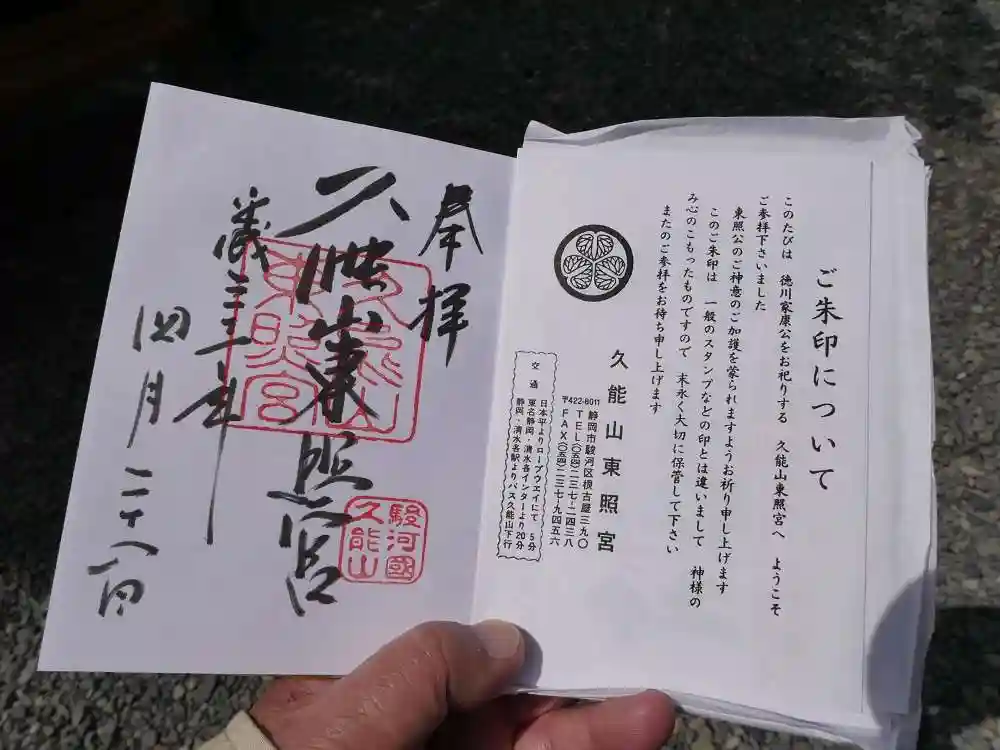 ご朱印について
このたびは 徳川家康公をお祀りする 久能山東照宮へ ようこそ
ご参拝下さいました
東照公のご神意のご加護を蒙られますようお祈り申し上げます
このご朱印は 一般のスタンプなどの印とは違いまして 神様の
み心のこもったものですので 末永く大切に保管して下さい
またのご参拝をお待ち申し上げます
久能山東照宮
静岡市駿河区根古屋三九〇
〒422-8011 TEL(〇五四)二三七-二四三八
FAX(〇五四)二三七-九四五六
交通
日本平よりロープウエイにて 5分
東名静岡・清水各インターより20分
静岡・清水各駅よりバス久能山下行
奉拝
久能山東照宮
久能山
東照宮
駿河國
久能山
平成二十五年
四月二十八日